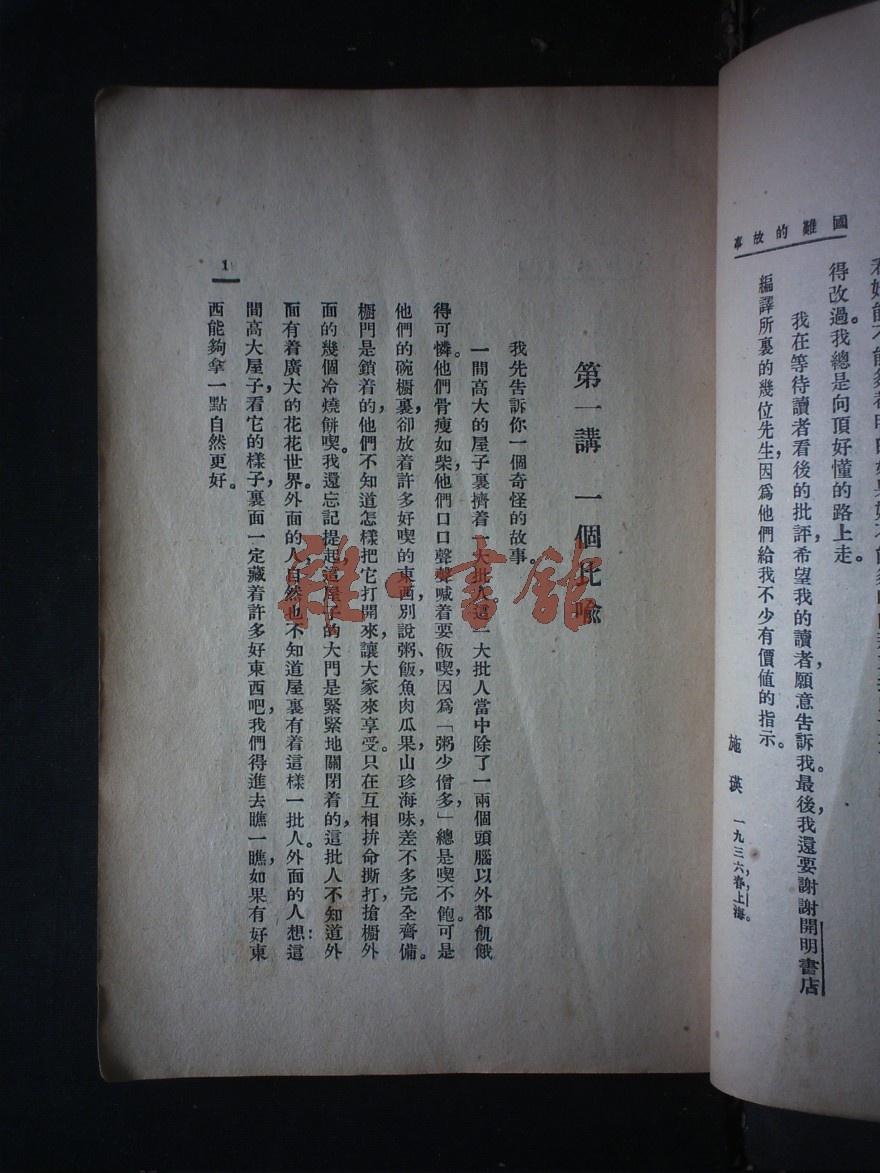 國難的故事
得改過。我總是向頂好懂的路上走。
我在等待讀者看後的批評，希望我的讀者願意告訴我。最後，我還要謝謝開明書店
編譯所裏的幾位先生，因爲他們給我不少有價值的指示。
施瑛 一九三六，春，上海。
第一講 一個比喩
我先告訴你一個奇怪的故事
一間高大的屋子裏擠着一大批人。這一大批人當中除了一兩個頭腦以外都飢餓
得可憐。他們骨瘦如柴，他們口口聲聲喊着要飯喫，因爲「粥少僧多，」總是喫不飽。可是
他們的碗櫥裏，卻放着許多好喫的東西，別說粥、飯魚肉瓜果，山珍海味差不多完全齊備。
櫥門是鎖着的，他們不知道怎樣把它打開來讓大家來享受。只在互相拚命撕打，搶櫥外
面的幾個冷燒餅喫。我還忘記提起，這屋子的大門是緊緊地關閉着的，這批人不知道外
面有着廣大的花花世界。外面的人，自然也不知道屋裏有着這樣一批人。外面的人想：這
間高大屋子，看它的樣子，裏面一定藏着許多好東西吧，我們得進去瞧一瞧，如果有好東
西能夠拿一點自然更好。
1
雜·書館